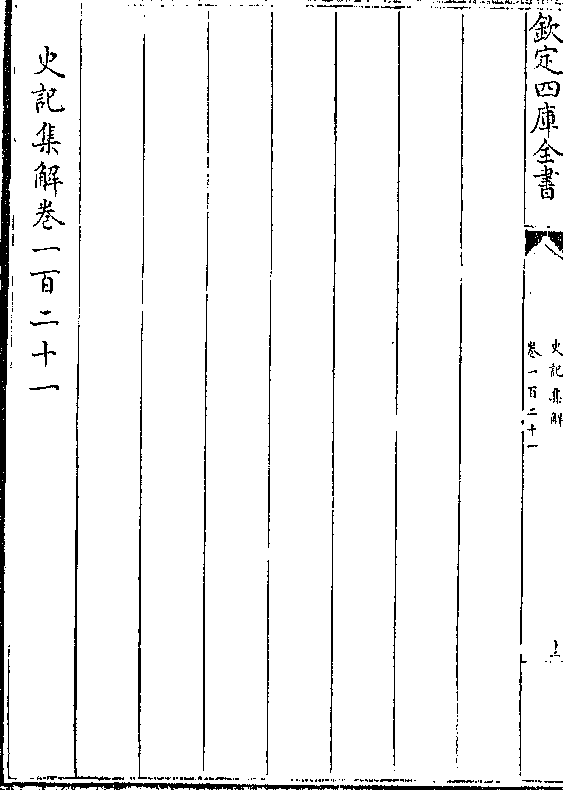 欽定四庫全書
史記集解
卷一百二十一
史記集解卷一百二十一